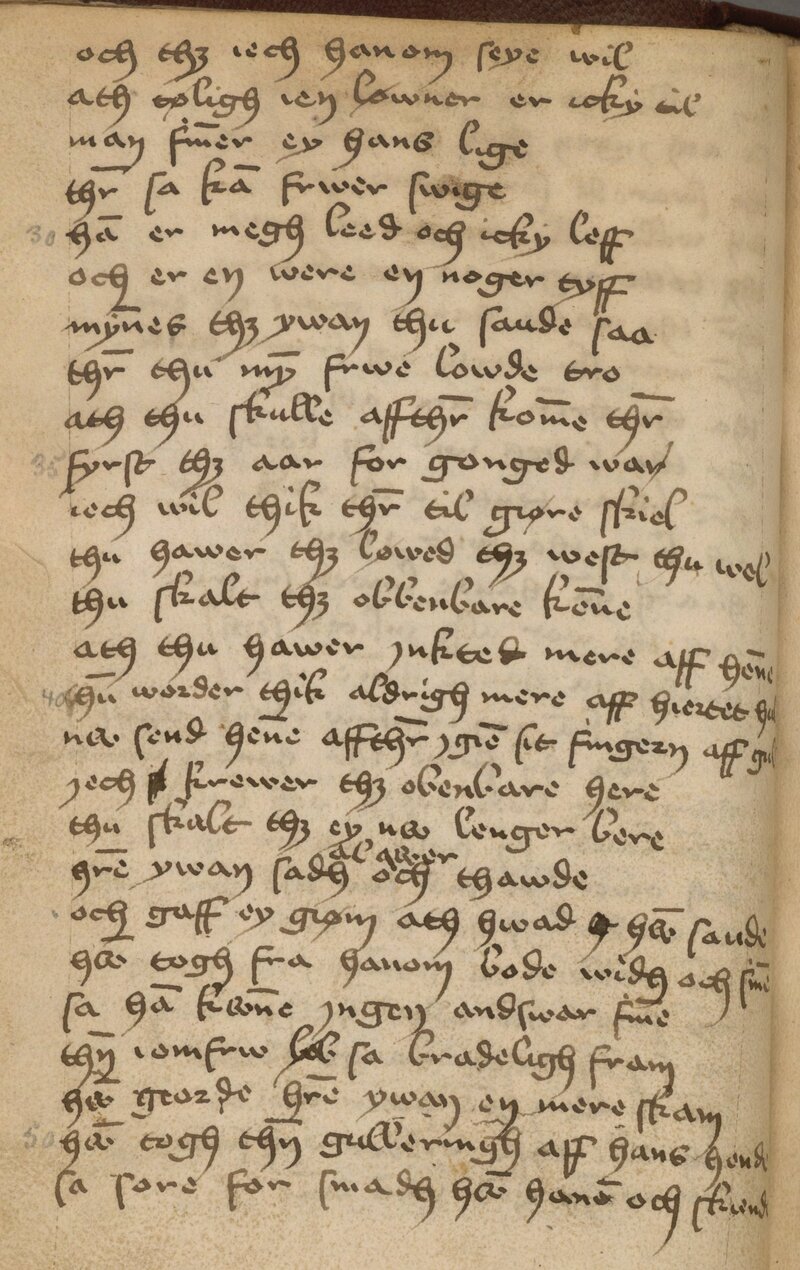 och thꝫ iech hanom seye wil
ath tøligh ien løwner er icky til
man fin̄er ey hans lige
thr̄ sa kā frwer swige
30 hā er megh leed och icky leff
och er en were en noger tyff
myn̄es thꝫ ywan thu saude saa
thr̄ thu myn̄ frwe lowde tro
ath thu skulle affthr̄ kom̄e thr̄
35 fyrst thꝫ aar for gonged war
iech wil thik thr̄ til giøre skiel
thu hawer thꝫ løwed thꝫ west thu wel
thu skalt thꝫ obbenbare ken̄e
ath thu hawer ynkted mere aff hen̄e
40 hū worder thik aldrigh mere aff hiertet
nw send hen̄e affthr̄ ygiē sit fingern aff
yech krewer thꝫ obenbare here
thu skalt thꝫ ey nw lenger bere
hr̄e ywan sadh och thawde
al awer
och gaff ey grøm ath hwad hw̄ saude
hw̄ togh fra hanom bode widh och sin̄e
sa hā kwn̄e yngen andswar fin̄e
thn̄ iomfrw løb sa bradeligh fram
hw̄ georde hr̄e ywan en mere skam
50 hw̄ togh thn̄ gulleringh aff hans hende
sa sore for smadh hw̄ hanō och